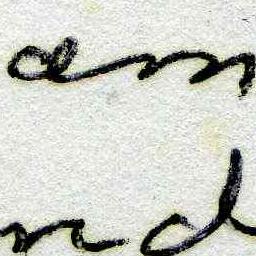 am
nd